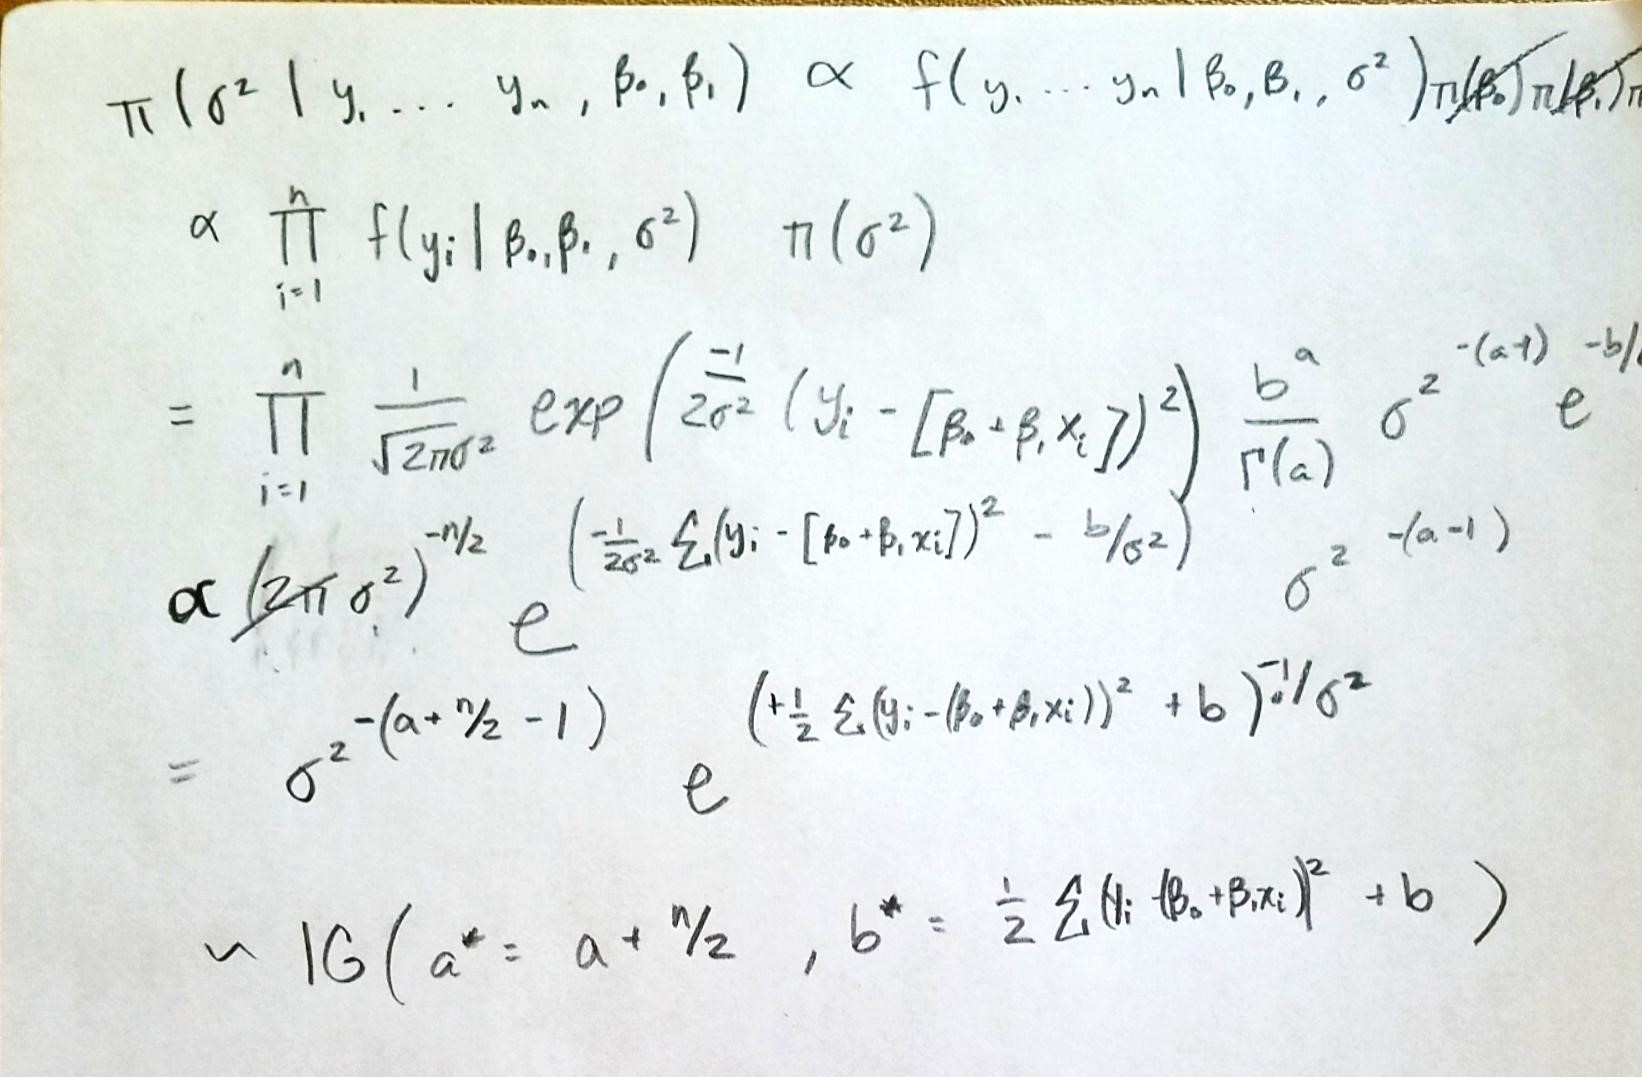 π(σ² | y₁ ... yₙ, β₀, β₁) ∝ f(y₁ ... yₙ | β₀, β₁, σ²) π(β₀) π(β₁) π
∝ ∏ᵢ₌₁ⁿ f(yᵢ | β₀, β₁, σ²) π(σ²)
= ∏ᵢ₌₁ⁿ 1/√(2πσ²) exp(-1/2σ² (yᵢ - [β₀ + β₁xᵢ])²) bᵃ/Γ(a) σ²^-(a+1) e^-b/
∝ (2πσ²)^-n/2 e^(-1/2σ² Σ(yᵢ - [β₀ + β₁xᵢ])² - b/σ²) σ²^-(a-1)
= σ²^-(a + n/2 - 1) e^(+1/2 Σ(yᵢ - (β₀ + β₁xᵢ))² + b)^-1/σ²
~ IG(a* = a + n/2, b* = 1/2 Σ(yᵢ - (β₀ + β₁xᵢ))² + b)